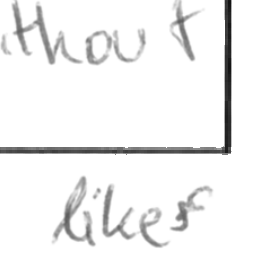 ithout
likes